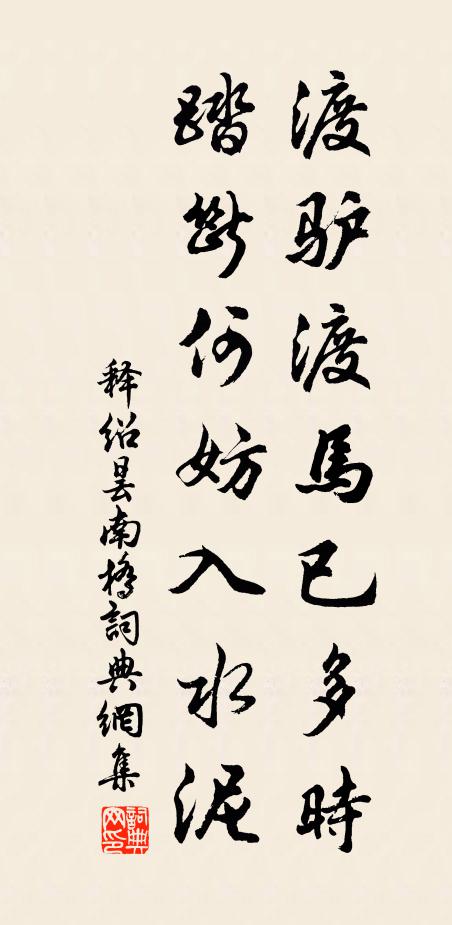 渡驴渡馬已多時
踏斷何妨入水泥
释绍昙南橋詞典網集
詞典网印